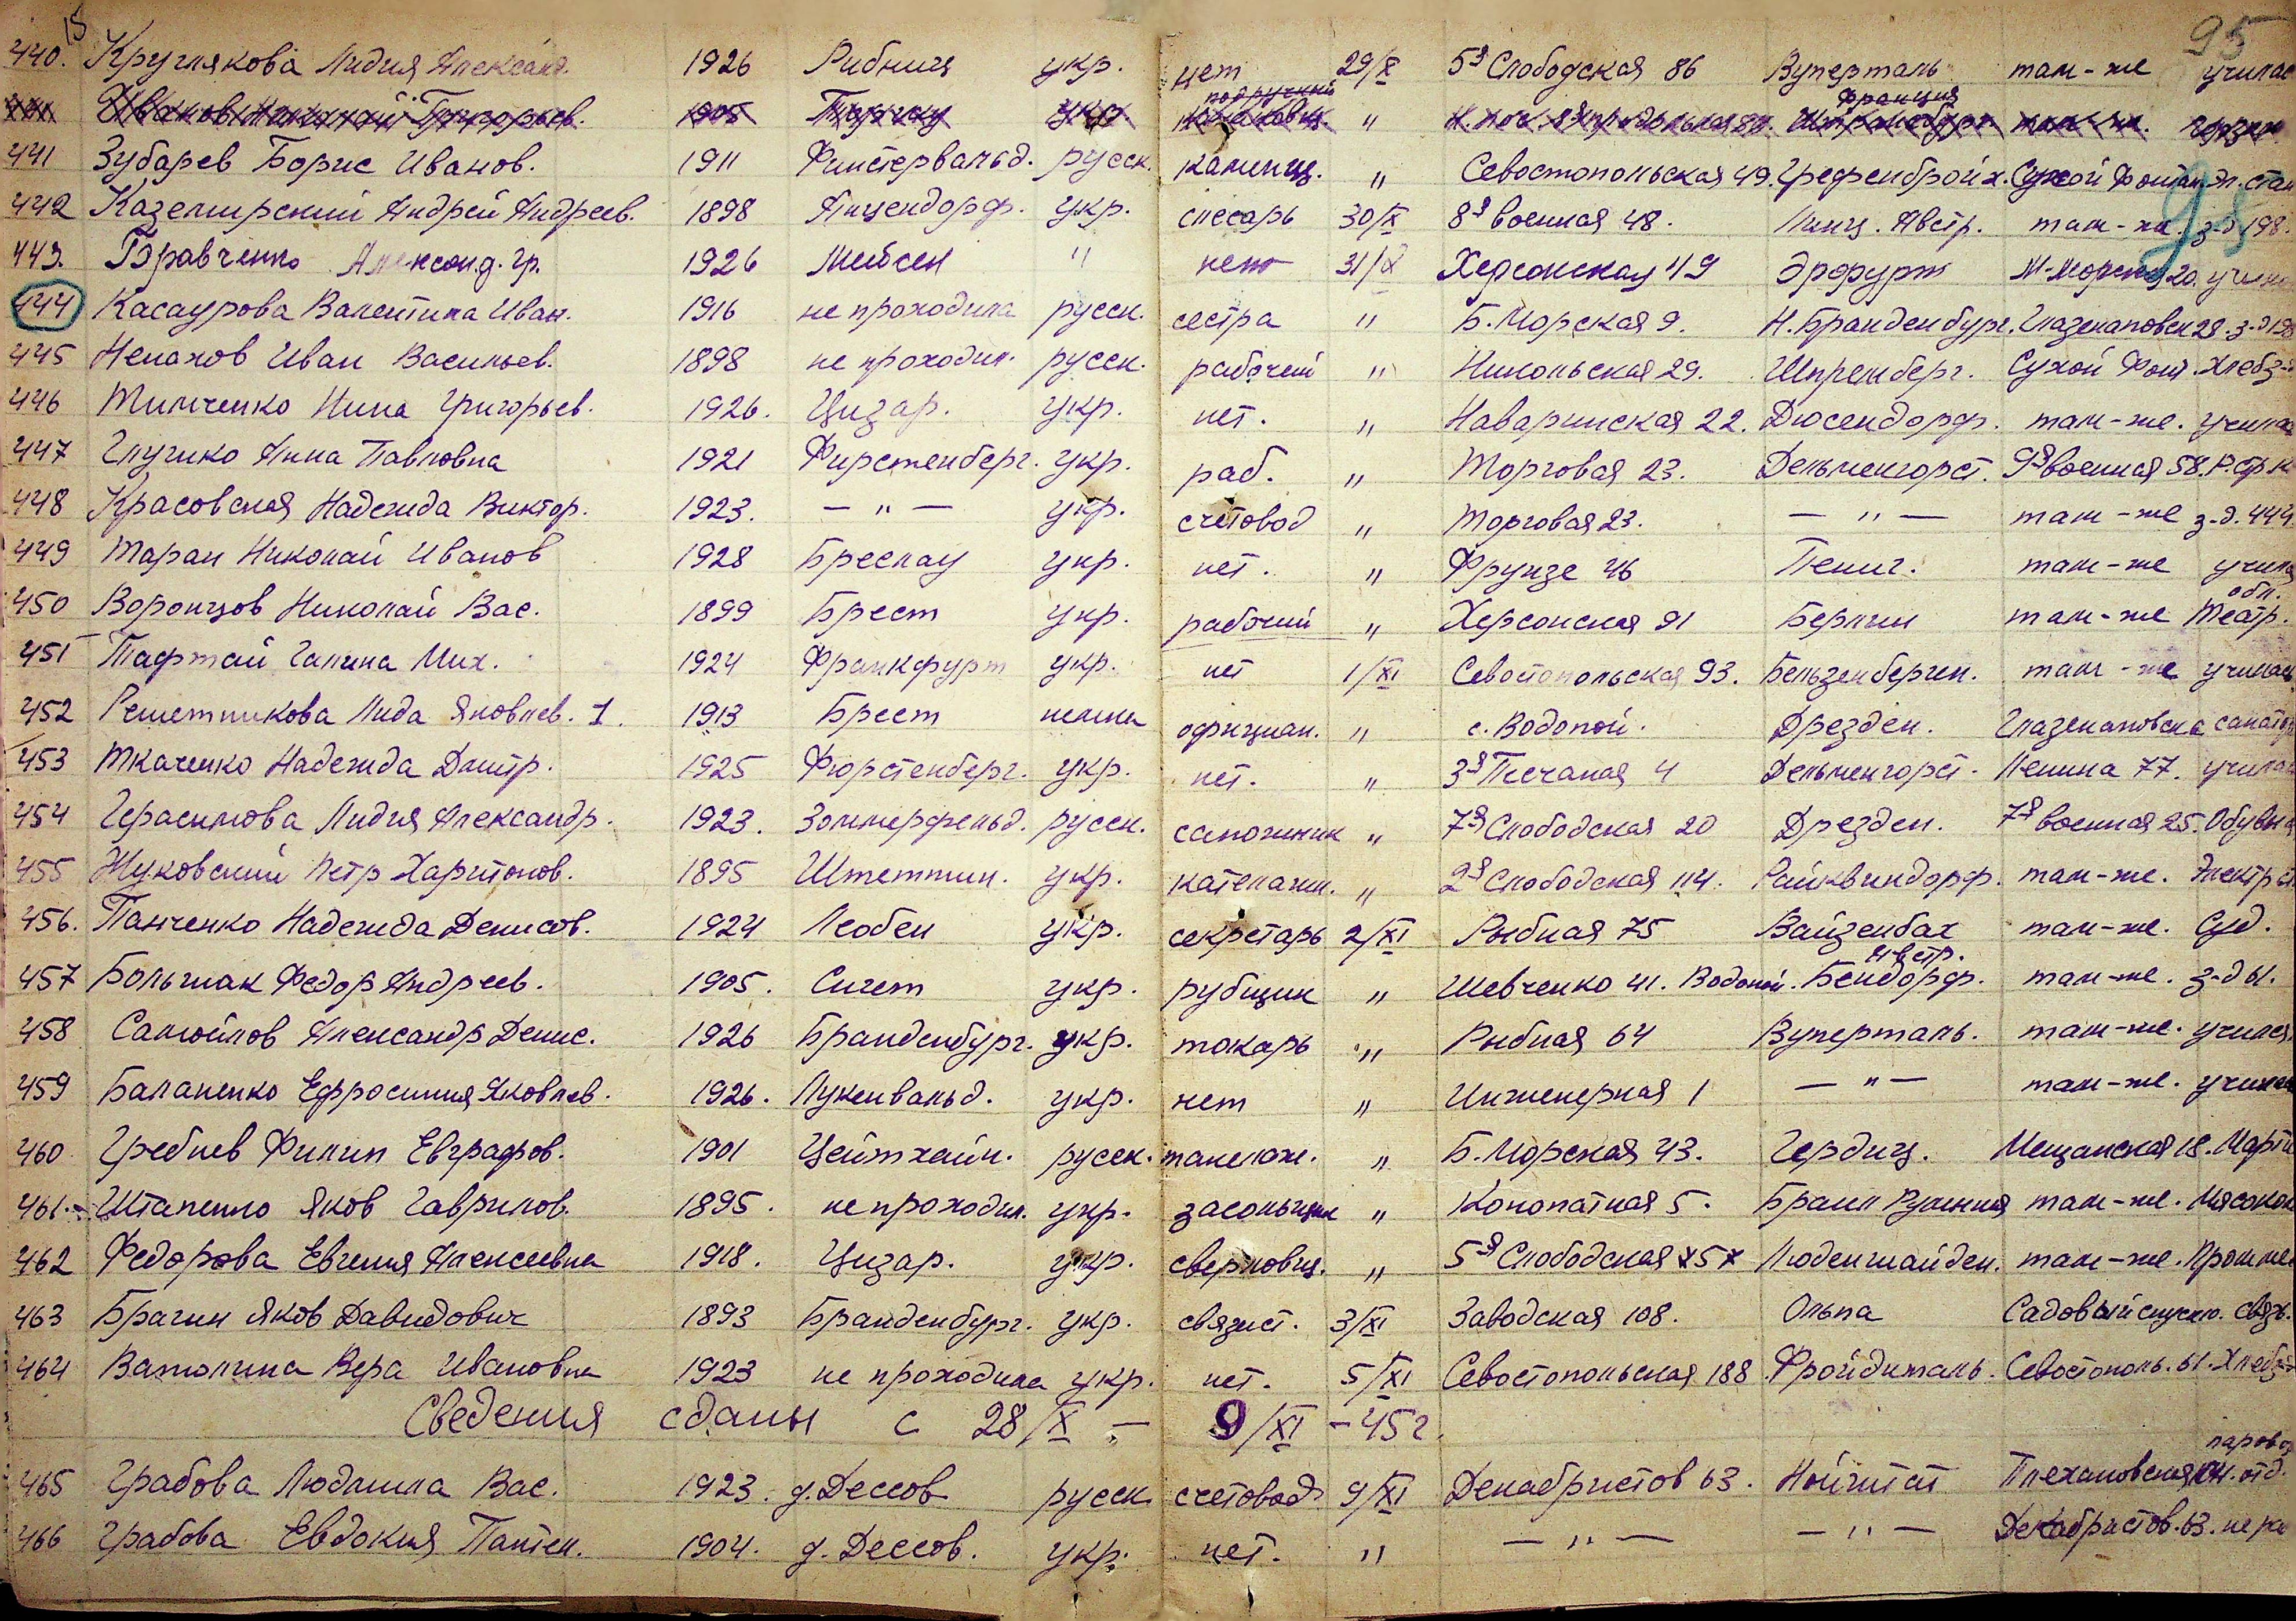 15 95
440. Круглякова Лидия Александ. 1926 Рибниц укр. нет 29/X 5я Слободская 86 Вуперталь там-же училас
Иванов Николай Григорьев. 1905 укр. подручный " Франция там-же.
441 Зубарев Борис Иванов. 1911 Финстервальд. русск. каменщ. " Севостопольская 49. Грефенбройх. Сухой Фонтан
442 Каземирский Андрей Андреев. 1898 Анцендорф. укр. слесарь 30/X 8я военная 48. Линц. Австр. там-же. з-д 198.
443. Бравченко Александ. Гр. 1926 Мейсен " нет 31/X Херсонская 49 Эрфурт М-Морская 20. учил
444 Касаурова Валентина Иван. 1916 не проходила русск. сестра " Б. Морская 9. Н. Бранденбург. Глазенаповск 28. з-д 198
445 Немахов Иван Васильев. 1898 не проходил. русск. рабочий " Никольская 29. Шпремберг. Сухой Фонт. Хлебз-
446 Тимченко Нина Григорьев. 1926. Цизар. укр. нет. " Наваринская 22. Дюсендорф. там-же. училас
447 Глушко Анна Павловна 1921 Фирстенберг. укр. раб. " Торговая 23. Дельменгорст. 9я военная 58.
448 Красовская Надежда Виктор. 1923. — " — укр. счетовод " Торговая 23. — " — там-же з-д. 444
449 Таран Николай Иванов 1928 Бреслау укр. нет. " Фрунзе 46 Пениг. там-же учил
450 Воронцов Николай Вас. 1899 Брест укр. рабочий " Херсонская 91 Берлин там-же обл. Театр.
451 Тафтай Галина Мих. 1924 Франкфурт укр. нет 1/XI Севостопольская 93. Бельзенберген. там-же училась
452 Решетникова Лида Яковлев. 1. 1913 Брест немка официан. " с. Водопой. Дрезден. Глазенаповска санатор
453 Ткаченко Надежда Дмитр. 1925 Фюрстенберг. укр. нет. " 3я Песчаная 4 Дельменгорст. Ленина 77. училас
454 Герасимова Лидия Александр. 1923. Зоммерфельд. русск. сапожник " 7я Слободская 20 Дрезден. 7я военная 25. Обувн
455 Жуковский Петр Харитонов. 1895 Штеттин. укр. " 2я Слободская 114. Райквиндорф. там-же. Электр
456. Панченко Надежда Денисов. 1924 Леобен укр. секретарь 2/XI Рыбная 75 Вайзенбах Австр. там-же. Суд.
457 Большак Федор Андреев. 1905. Сигет укр. рубщик " Шевченко 41. Водопой. Бендорф. там-же. з-д 61.
458 Самойлов Александр Денис. 1926 Бранденбург. укр. токарь " Рыбная 64 Вуперталь. там-же. учился.
459 Баланенко Ефросиния Яковлев. 1926. Лукенвальд. укр. нет " Инженерная 1 — " — там-же. училас
460 Гребнев Филип Евграфов. 1901 Цейтхайн. русск. такелаж. " Б. Морская 43. Гердиц. Мещанская 18. Марти
461. Штапенло Яков Гаврилов. 1895. не проходил. укр. засольщик " Конопатная 5. Браил Румыния там-же. Мясоком
462 Федорова Евгения Алексеевна 1918. Цизар. укр. сверловщ. " 5я Слободская 5 Люденшайден. там-же.
463 Брагин Яков Давидович 1893 Бранденбург. укр. связист. 3/XI Заводская 108. Ольпа Садовый спуск 10. Связь.
464 Ватолина Вера Ивановна 1923 не проходила укр. нет. 5/XI Севостопольская 188 Фройдиталь. Севостополь. 61. Хлебз
Сведения сданы с 28/X — 9/XI - 45 г.
465 Грабова Людмила Вас. 1923. г. Дессов русск счетовод 9/XI Декабристов 63. Нойштат Плехановская паровоз. отд.
466 Грабова Евдокия Пантел. 1904. г. Дессов. укр. нет. " — " — — " — Декабристов. 63. не ра